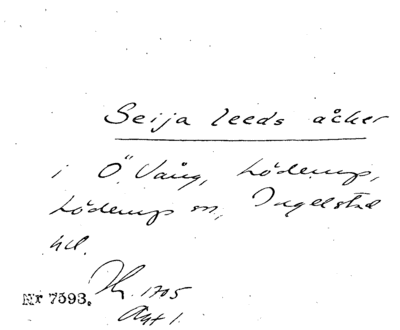 Seija leeds åcker
i Ö. Vång, Löderup,
Löderups sn, Ingelstad
hd.
Nr 7593. 1705
Akt 1.